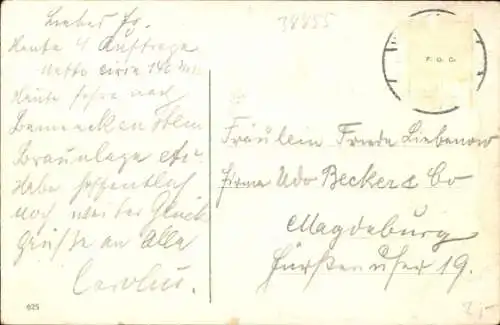 Lieber Jo.
Heute 4 Aufträge
Netto circa 140 Mk.
Heute fahre nach
Benneckenstein
Braunlage etc.
Habe hoffentlich
noch weiter Glück
Grüße an Alle
Carolus.
38855
F.O.O.
Fräulein Friede Liebenow
Firma Udo Becker & Co
Magdeburg
Fürstenufer 19.
625
2,-